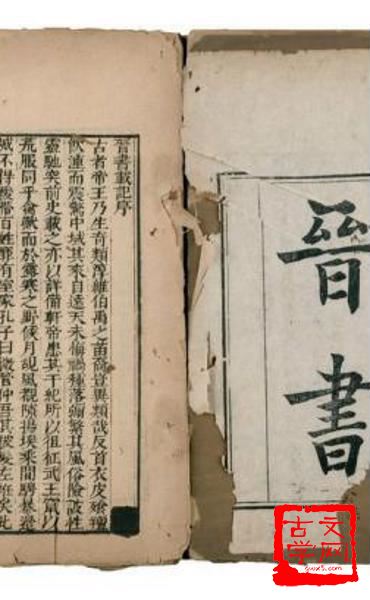 晉書
晉書載記序
古者帝王乃生奇類淳維伯禹之苗裔豈異類哉反首衣皮飧膻
飲湩而震驚中域其來自遠天未悔禍種落彌繁其風俗險詖性
靈馳突前史載之亦以詳備軒帝患其干紀所以徂征武王竄以
荒服同乎禽獸而於露寒之野候月覘風覩隙揚埃乘間騁暴邊
城不得緩帶百姓靡有室家孔子曰微管仲吾其被髮左衽矣此
古文
学网